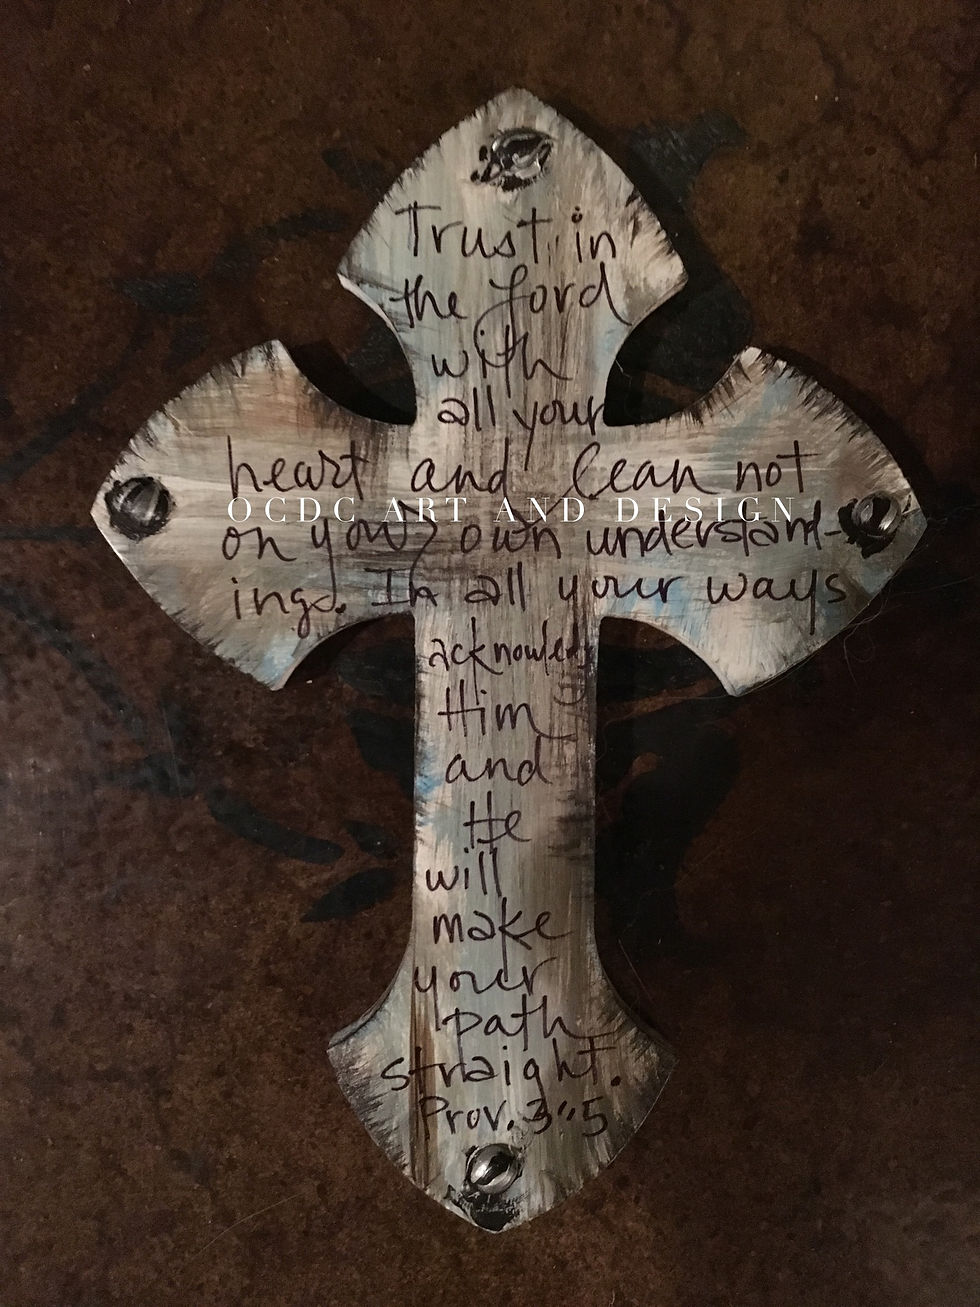 Trust in
the Lord
with
all your
heart and lean not
OCDC ART AND DESIGN
on your own understand-
ings. In all your ways
acknowledg
Him
and
He
will
make
your
path
straight.
Prov. 3:5